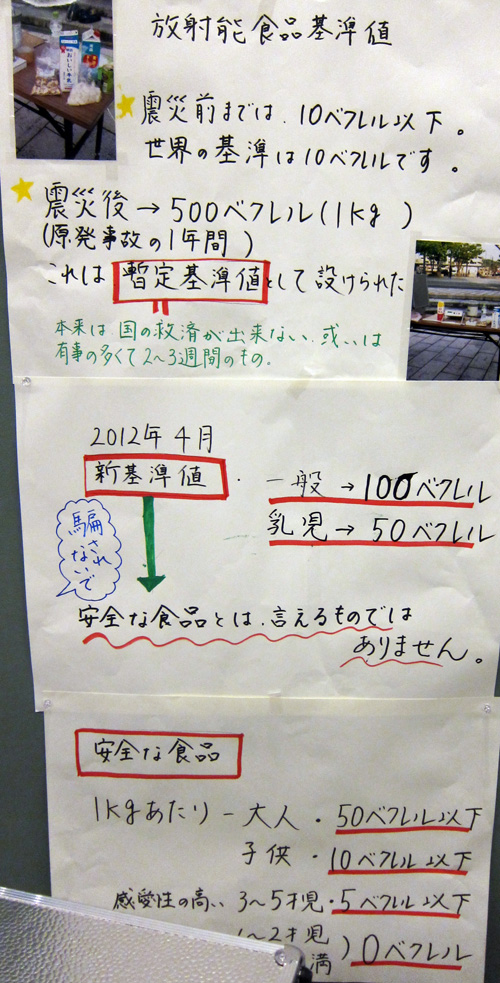 放射能食品基準値
震災前までは、10ベクレル以下。
世界の基準は10ベクレルです。
震災後→500ベクレル(1kg)
(原発事故の1年間)
これは暫定基準値として設けられた
本来は国の救済が出来ない、或いは
有事の多くて2〜3週間のもの。
2012年4月
新基準値・一般→100ベクレル
乳児→50ベクレル
騙され
ないで
安全な食品とは、言えるものでは
ありません。
安全な食品
1kgあたり−大人・50ベクレル以下
子供・10ベクレル以下
感受性の高い 3〜5才児・5ベクレル以下
〜2才児
満)0ベクレル